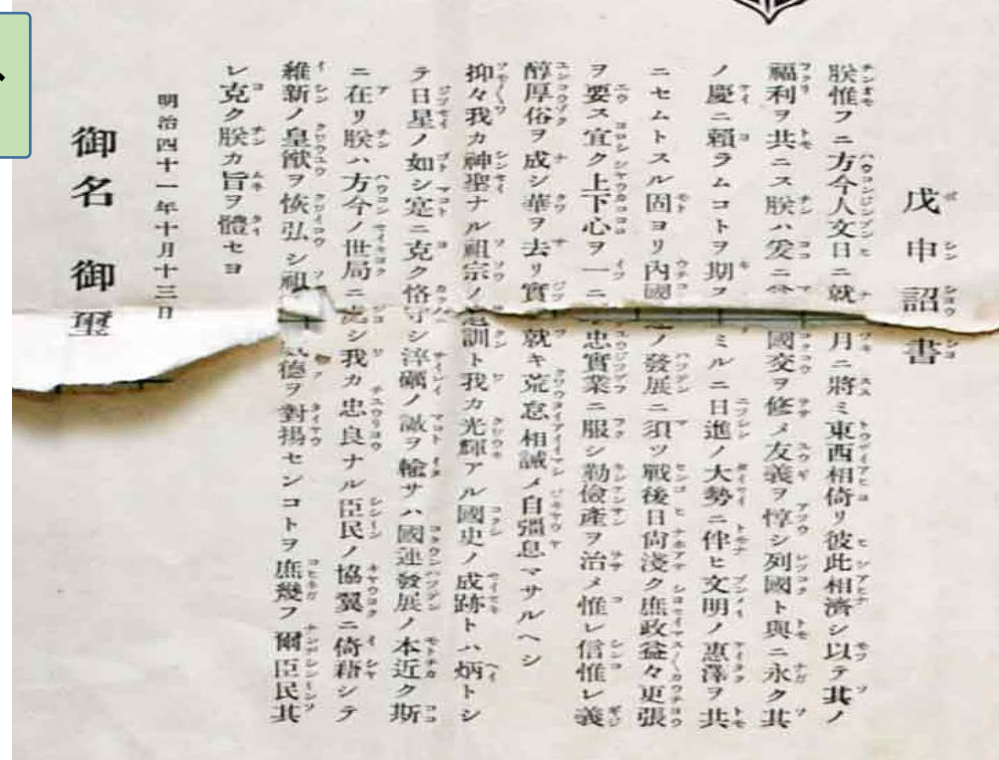 戊申詔書
朕惟フニ方今人文日ニ就 月ニ將ミ東西相倚リ彼此相濟シ以テ其ノ
福利ヲ共ニス朕ハ爰ニ 國交ヲ修メ友義ヲ惇シ列國ト與ニ永ク其
ノ慶ニ賴ラムコトヲ期 ミルニ日進ノ大勢ニ伴ヒ文明ノ惠澤ヲ共
ニセムトスル固ヨリ內國 ノ發展ニ須ツ戰後日尙淺ク庶政益々更張
ヲ要ス宜ク上下心ヲ一ニ 忠實業ニ服シ勤儉產ヲ治メ惟レ信惟レ義
醇厚俗ヲ成シ華ヲ去リ實 就キ荒怠相誡メ自彊息マサルヘシ
抑々我カ神聖ナル祖宗ノ 訓ト我カ光輝アル國史ノ成跡トハ炳トシ
テ日星ノ如シ寔ニ克ク恪守シ淬礪ノ誠ヲ輸サハ國運發展ノ本近ク斯
ニ在リ朕ハ方今ノ世局ニ處シ我カ忠良ナル臣民ノ協翼ニ倚藉シテ
維新ノ皇猷ヲ恢弘シ祖 德ヲ對揚センコトヲ庶幾フ爾臣民其
レ克ク朕カ旨ヲ體セヨ
明治四十一年十月十三日
御名御璽